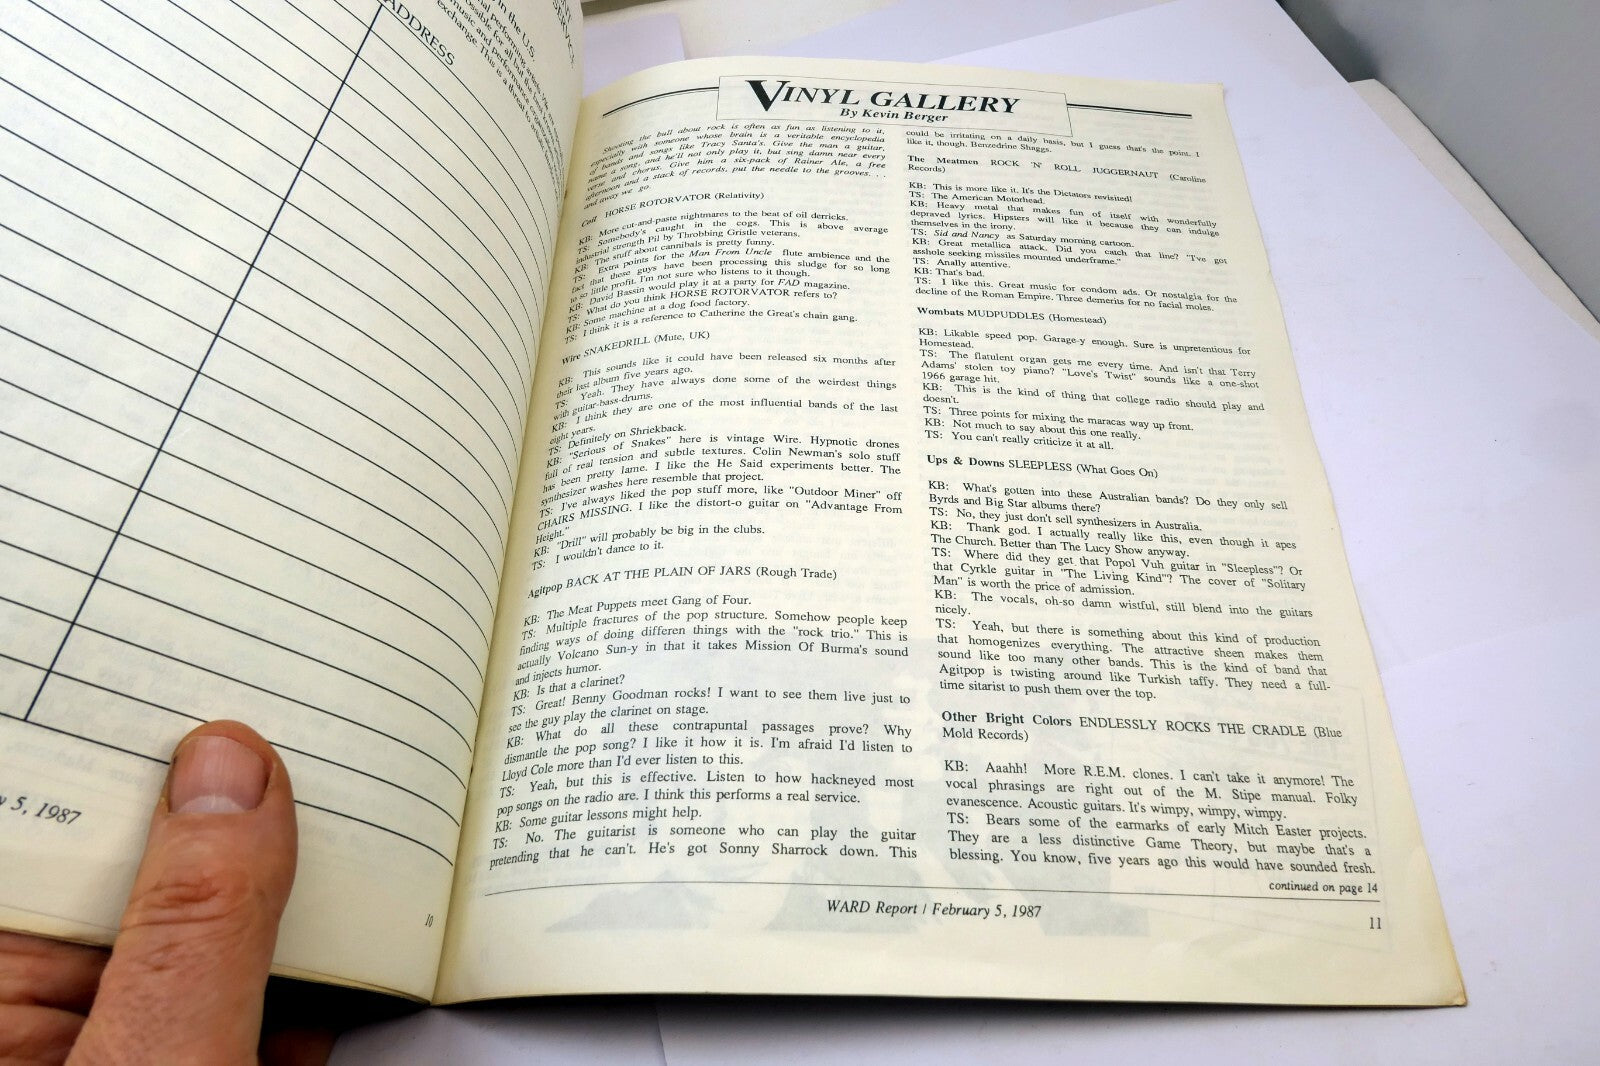 in the U.S.
ADDRESS
y 5, 1987
10
VINYL GALLERY
By Kevin Berger
Shooting the bull about rock is often as fun as listening to it,
especially with someone whose brain is a veritable encyclopedia
of bands and songs like Tracy Santa's. Give the man a guitar,
name a song, and he'll not only play it, but sing damn near every
verse and chorus. Give him a six-pack of Rainer Ale, a free
afternoon and a stack of records, put the needle to the grooves. . .
and away we go.
Coil HORSE ROTORVATOR (Relativity)
KB: More cut-and-paste nightmares to the beat of oil derricks.
TS: Somebody's caught in the cogs. This is above average
industrial strength Pil by Throbbing Gristle veterans.
KB: The stuff about cannibals is pretty funny.
TS: Extra points for the Man From Uncle flute ambience and the
fact that these guys have been processing this sludge for so long
to so little profit. I'm not sure who listens to it though.
KB: David Bassin would play it at a party for FAD magazine.
TS: What do you think HORSE ROTORVATOR refers to?
KB: Some machine at a dog food factory.
TS: I think it is a reference to Catherine the Great's chain gang.
Wire SNAKEDRILL (Mute, UK)
KB: This sounds like it could have been released six months after
their last album five years ago.
TS: Yeah. They have always done some of the weirdest things
with guitar-bass-drums.
KB: I think they are one of the most influential bands of the last
eight years.
TS: Definitely on Shriekback.
KB: "Serious of Snakes" here is vintage Wire. Hypnotic drones
full of real tension and subtle textures. Colin Newman's solo stuff
has been pretty lame. I like the He Said experiments better. The
synthesizer washes here resemble that project.
TS: I've always liked the pop stuff more, like "Outdoor Miner" off
CHAIRS MISSING. I like the distort-o guitar on "Advantage From
Height."
KB: "Drill" will probably be big in the clubs.
TS: I wouldn't dance to it.
Agitpop BACK AT THE PLAIN OF JARS (Rough Trade)
KB: The Meat Puppets meet Gang of Four.
TS: Multiple fractures of the pop structure. Somehow people keep
finding ways of doing different things with the "rock trio." This is
actually Volcano Sun-y in that it takes Mission Of Burma's sound
and injects humor.
KB: Is that a clarinet?
TS: Great! Benny Goodman rocks! I want to see them live just to
see the guy play the clarinet on stage.
KB: What do all these contrapuntal passages prove? Why
dismantle the pop song? I like it how it is. I'm afraid I'd listen to
Lloyd Cole more than I'd ever listen to this.
TS: Yeah, but this is effective. Listen to how hackneyed most
pop songs on the radio are. I think this performs a real service.
KB: Some guitar lessons might help.
TS: No. The guitarist is someone who can play the guitar
pretending that he can't. He's got Sonny Sharrock down. This
could be irritating on a daily basis, but I guess that's the point. I
like it, though. Benzedrine Shaggs.
The Meatmen ROCK 'N' ROLL JUGGERNAUT (Caroline
Records)
KB: This is more like it. It's the Dictators revisited!
TS: The American Motorhead.
KB: Heavy metal that makes fun of itself with wonderfully
depraved lyrics. Hipsters will like it because they can indulge
themselves in the irony.
TS: Sid and Nancy as Saturday morning cartoon.
KB: Great metallica attack. Did you catch that line? "I've got
asshole seeking missiles mounted underframe."
TS: Anally attentive.
KB: That's bad.
TS: I like this. Great music for condom ads. Or nostalgia for the
decline of the Roman Empire. Three demerits for no facial moles.
Wombats MUDPUDDLES (Homestead)
KB: Likable speed pop. Garage-y enough. Sure is unpretentious for
Homestead.
TS: The flatulent organ gets me every time. And isn't that Terry
Adams' stolen toy piano? "Love's Twist" sounds like a one-shot
1966 garage hit.
KB: This is the kind of thing that college radio should play and
doesn't.
TS: Three points for mixing the maracas way up front.
KB: Not much to say about this one really.
TS: You can't really criticize it at all.
Ups & Downs SLEEPLESS (What Goes On)
KB: What's gotten into these Australian bands? Do they only sell
Byrds and Big Star albums there?
TS: No, they just don't sell synthesizers in Australia.
KB: Thank god. I actually really like this, even though it apes
The Church. Better than The Lucy Show anyway.
TS: Where did they get that Popol Vuh guitar in "Sleepless"? Or
that Cyrkle guitar in "The Living Kind"? The cover of "Solitary
Man" is worth the price of admission.
KB: The vocals, oh-so damn wistful, still blend into the guitars
nicely.
TS: Yeah, but there is something about this kind of production
that homogenizes everything. The attractive sheen makes them
sound like too many other bands. This is the kind of band that
Agitpop is twisting around like Turkish taffy. They need a full-
time sitarist to push them over the top.
Other Bright Colors ENDLESSLY ROCKS THE CRADLE (Blue
Mold Records)
KB: Aaahh! More R.E.M. clones. I can't take it anymore! The
vocal phrasings are right out of the M. Stipe manual. Folky
evanescence. Acoustic guitars. It's wimpy, wimpy, wimpy.
TS: Bears some of the earmarks of early Mitch Easter projects.
They are a less distinctive Game Theory, but maybe that's a
blessing. You know, five years ago this would have sounded fresh.
continued on page 14
WARD Report / February 5, 1987
11